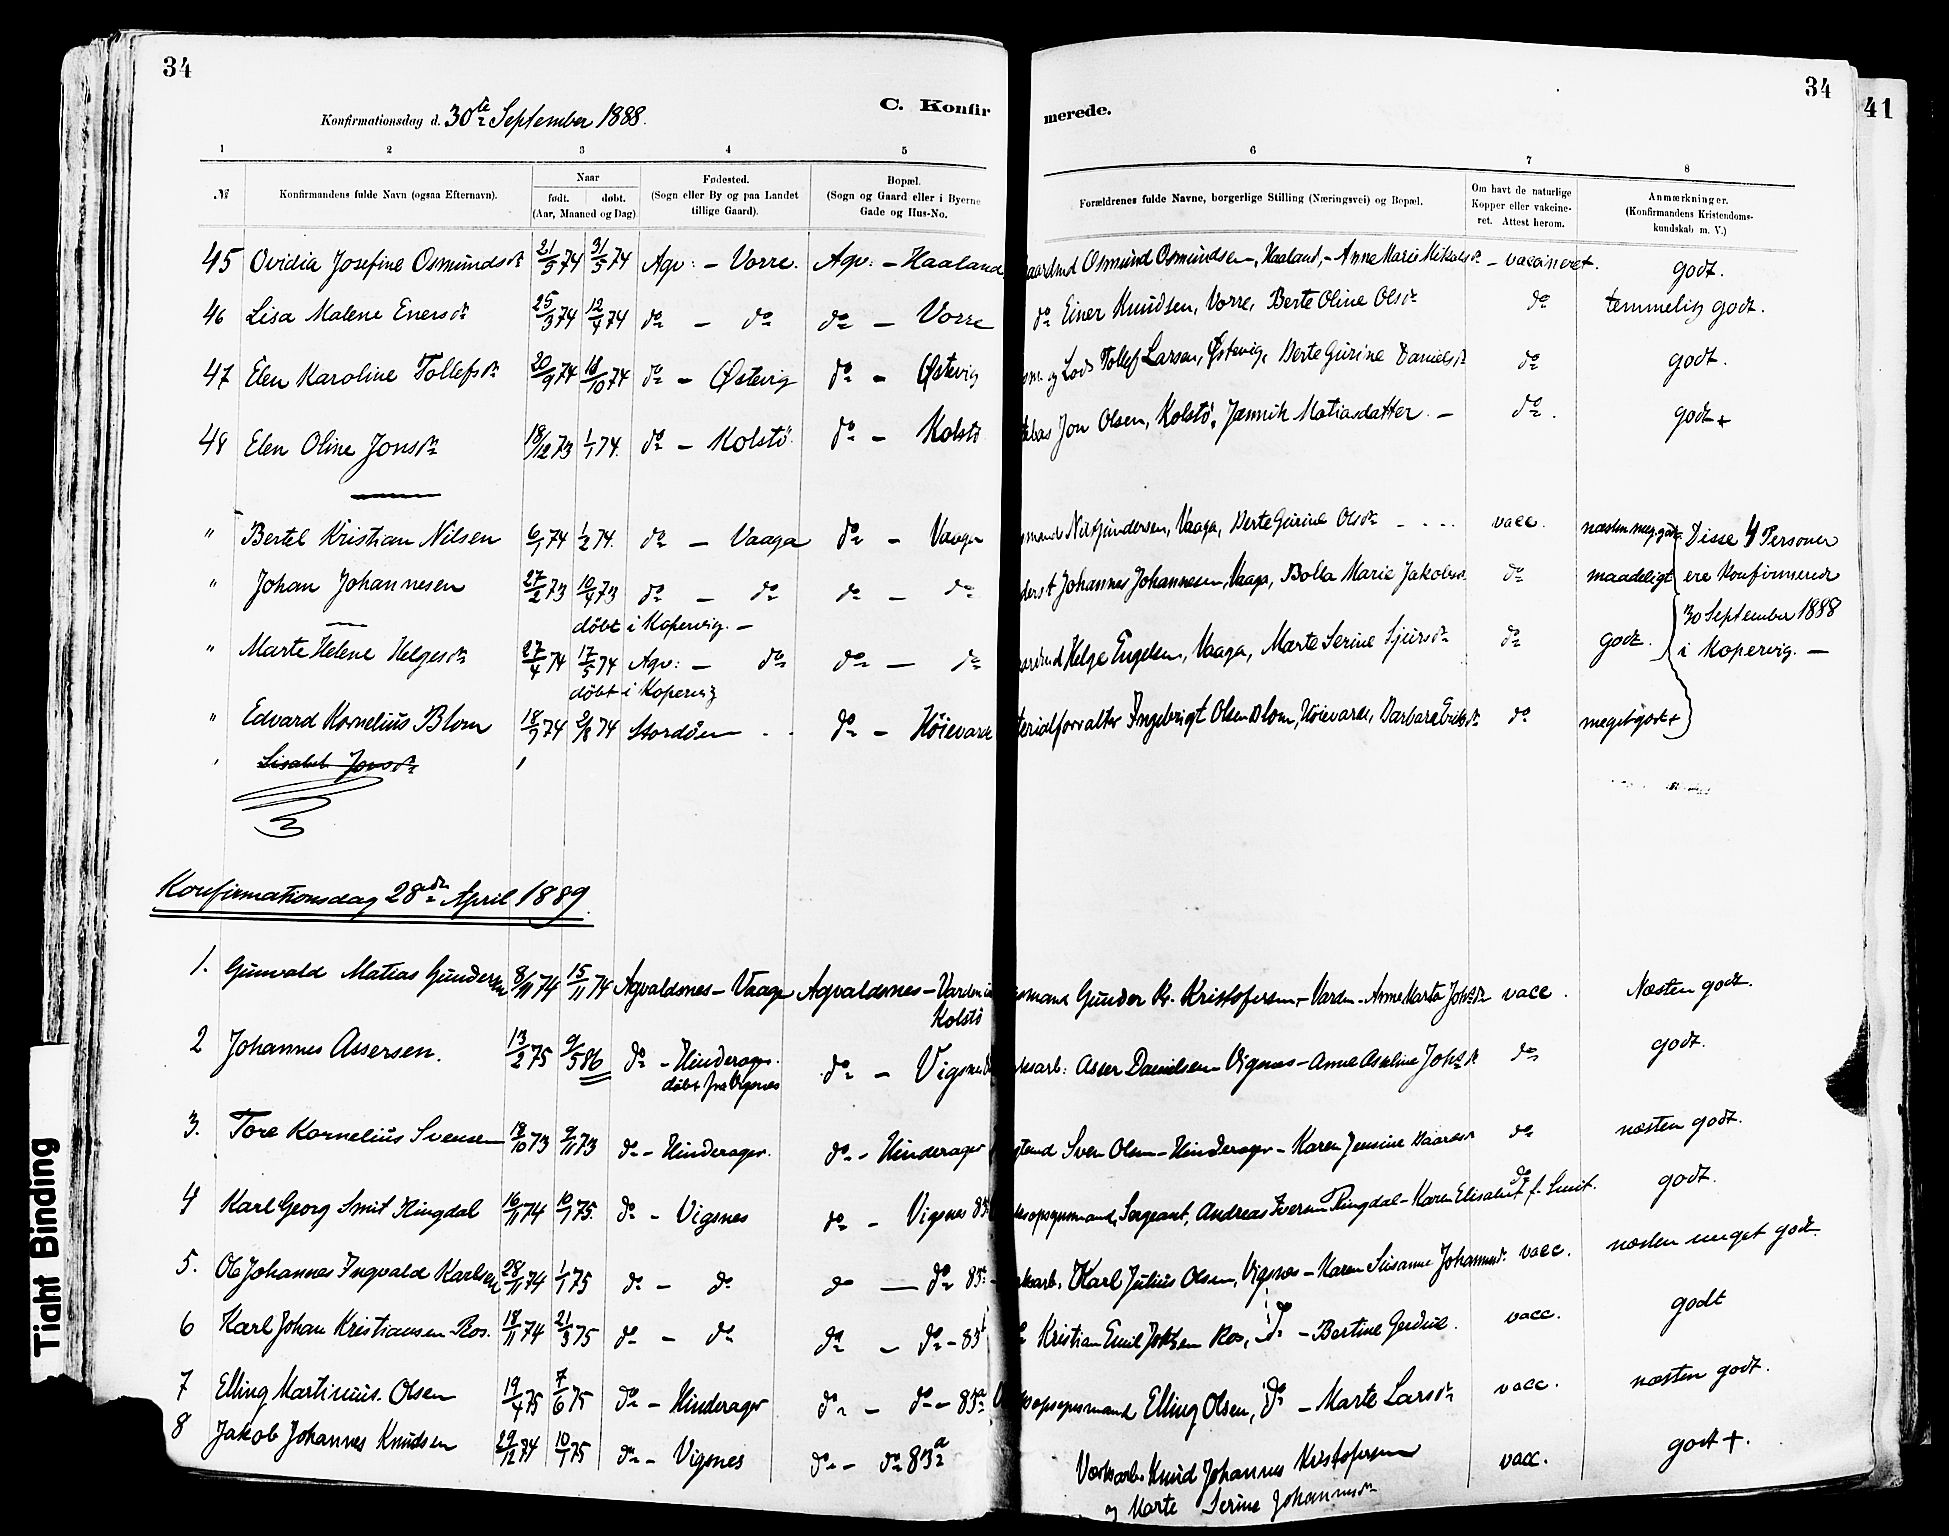 34
34
41
C. Konfirmerede.
Konfirmationsdag d. 30te September 1888.
1 2 3 4 5 6 7 8
№ Konfirmandens fulde Navn (ogsaa Efternavn). Naar født. døbt. (Aar, Maaned og Dag) Fødested. (Sogn eller By og paa Landet tillige Gaard). Bopæl. (Sogn og Gaard eller i Byerne Gade og Hus-No. Forældrenes fulde Navne, borgerlige Stilling (Næringsvei) og Bopæl. Om havt de naturlige Kopper eller vakcineret. Attest herom. Anmærkninger. (Konfirmandens Kristendomskundskab m. V.)
45 Ovidia Josefine Osmundsdr 21/3 74 31/5 74 Agv: – Vorre. Agv: – Haaland Osmund Osmundsen, Haaland, – Anne Marie Mikalsdr – vaccineret. godt.
46 Lisa Malene Enersdr 25/3 74 12/4 74 do – do do – Vorre do Einer Knudsen, Vorre, Berte Oline Olsdr do temmelig godt.
47 Elen Karoline Tollefsdr 20/9 74 18/10 74 do – Østevig do – Østevig og Lods Tollef Larsen, Østevig, Berte Gurine Danielsdr do godt.
48 Elen Oline Jonsdr 18/12 73 1/1 74. do – Kolstö. do – Kolstö Jon Olsen, Kolstö, Jannik Matiasdatter – do. godt +
" Bertel Kristian Nilsen 6/1 74 1/2 74. do – Vaaga do – Vaaga Nils Gundersen, Vaaga, Berte Gurine Olsdr - - - - vacc. næsten meg. godt Disse 4 Personer
" Johan Johannesen 27/2 73 10/4 73 do – do do – do Johannes Johannesen, Vaaga, Bolla Marie Jakobsd. do maadeligt ere Konfirmerede
döbt i Kopervig. – 30 September 1888
" Marte Helene Helgesdr 27/4 74 17/5 74 Agv: – do do – do Helge Engelsen, Vaaga, Marte Serine Sjursdr do godt. i Kopervig. –
döbt i Kopervig
" Edvard Kornelius Blom 18/7 74 2/8 74 Stordöen - - do – Höievarde Materialforvalter Ingebrigt Olsen Blom, Höievarde, Barbara Eriksdr do meget godt +
Lisabet Jonsdr
Konfirmationsdag 28de April 1889.
1. Gunvald Matias Gundersen 8/11 74 15/11 74 Agvaldsnes – Vaage Agvaldsnes – Varden
Kolstö Gunder Kr. Kristofersen – Varden – Anne Marta Johsdr vacc. Næsten godt.
2 Johannes Assersen. 13/2 75 9/5 86 do – Hinderager.
döbt fra Vigsnes do – Vigsnes Asser Danielsen Vigsnes – Anne Aseline Johsdr do godt.
3. Tore Kornelius Svensen 18/10 73 9/11 73 do – Hinderager. do – Hinderager Sven Olsen – Hinderager – Karen Jensine do næsten godt.
4 Karl Georg Smit Ringdal 16/11 74 10/1 75. do – Vigsnes do – Vigsnes 85 Sergeant, Andreas Iversen Ringdal – Karen Elisabet f. Smit. do godt.
5. Ole Johannes Ingvald Karlsen 28/11 74 1/1 75 do – do do – do 85 Karl Julius Olsen, Vigsnes – Karen Susanne Johannesdr vacc. næsten meget godt.
6 Karl Johan Kristiansen Ros. 18/11 74 21/3 75 do – do do – do – 83 Kristian Emil Johsen Ros, do – Bertine vacc. godt
7 Elling Martinius Olsen 19/4 75 7/6 75 do – Hinderager do – do – 83a Elling Olsen, do – Marte Larsdr vacc. næsten godt.
8 Jakob Johannes Knudsen 29/12 74 10/1 75 do – Vigsnes do – do 83a Værksarb. Knud Johannes Kristofersen
og Marte Serine Johannesdr vacc. godt +.
Tight Binding